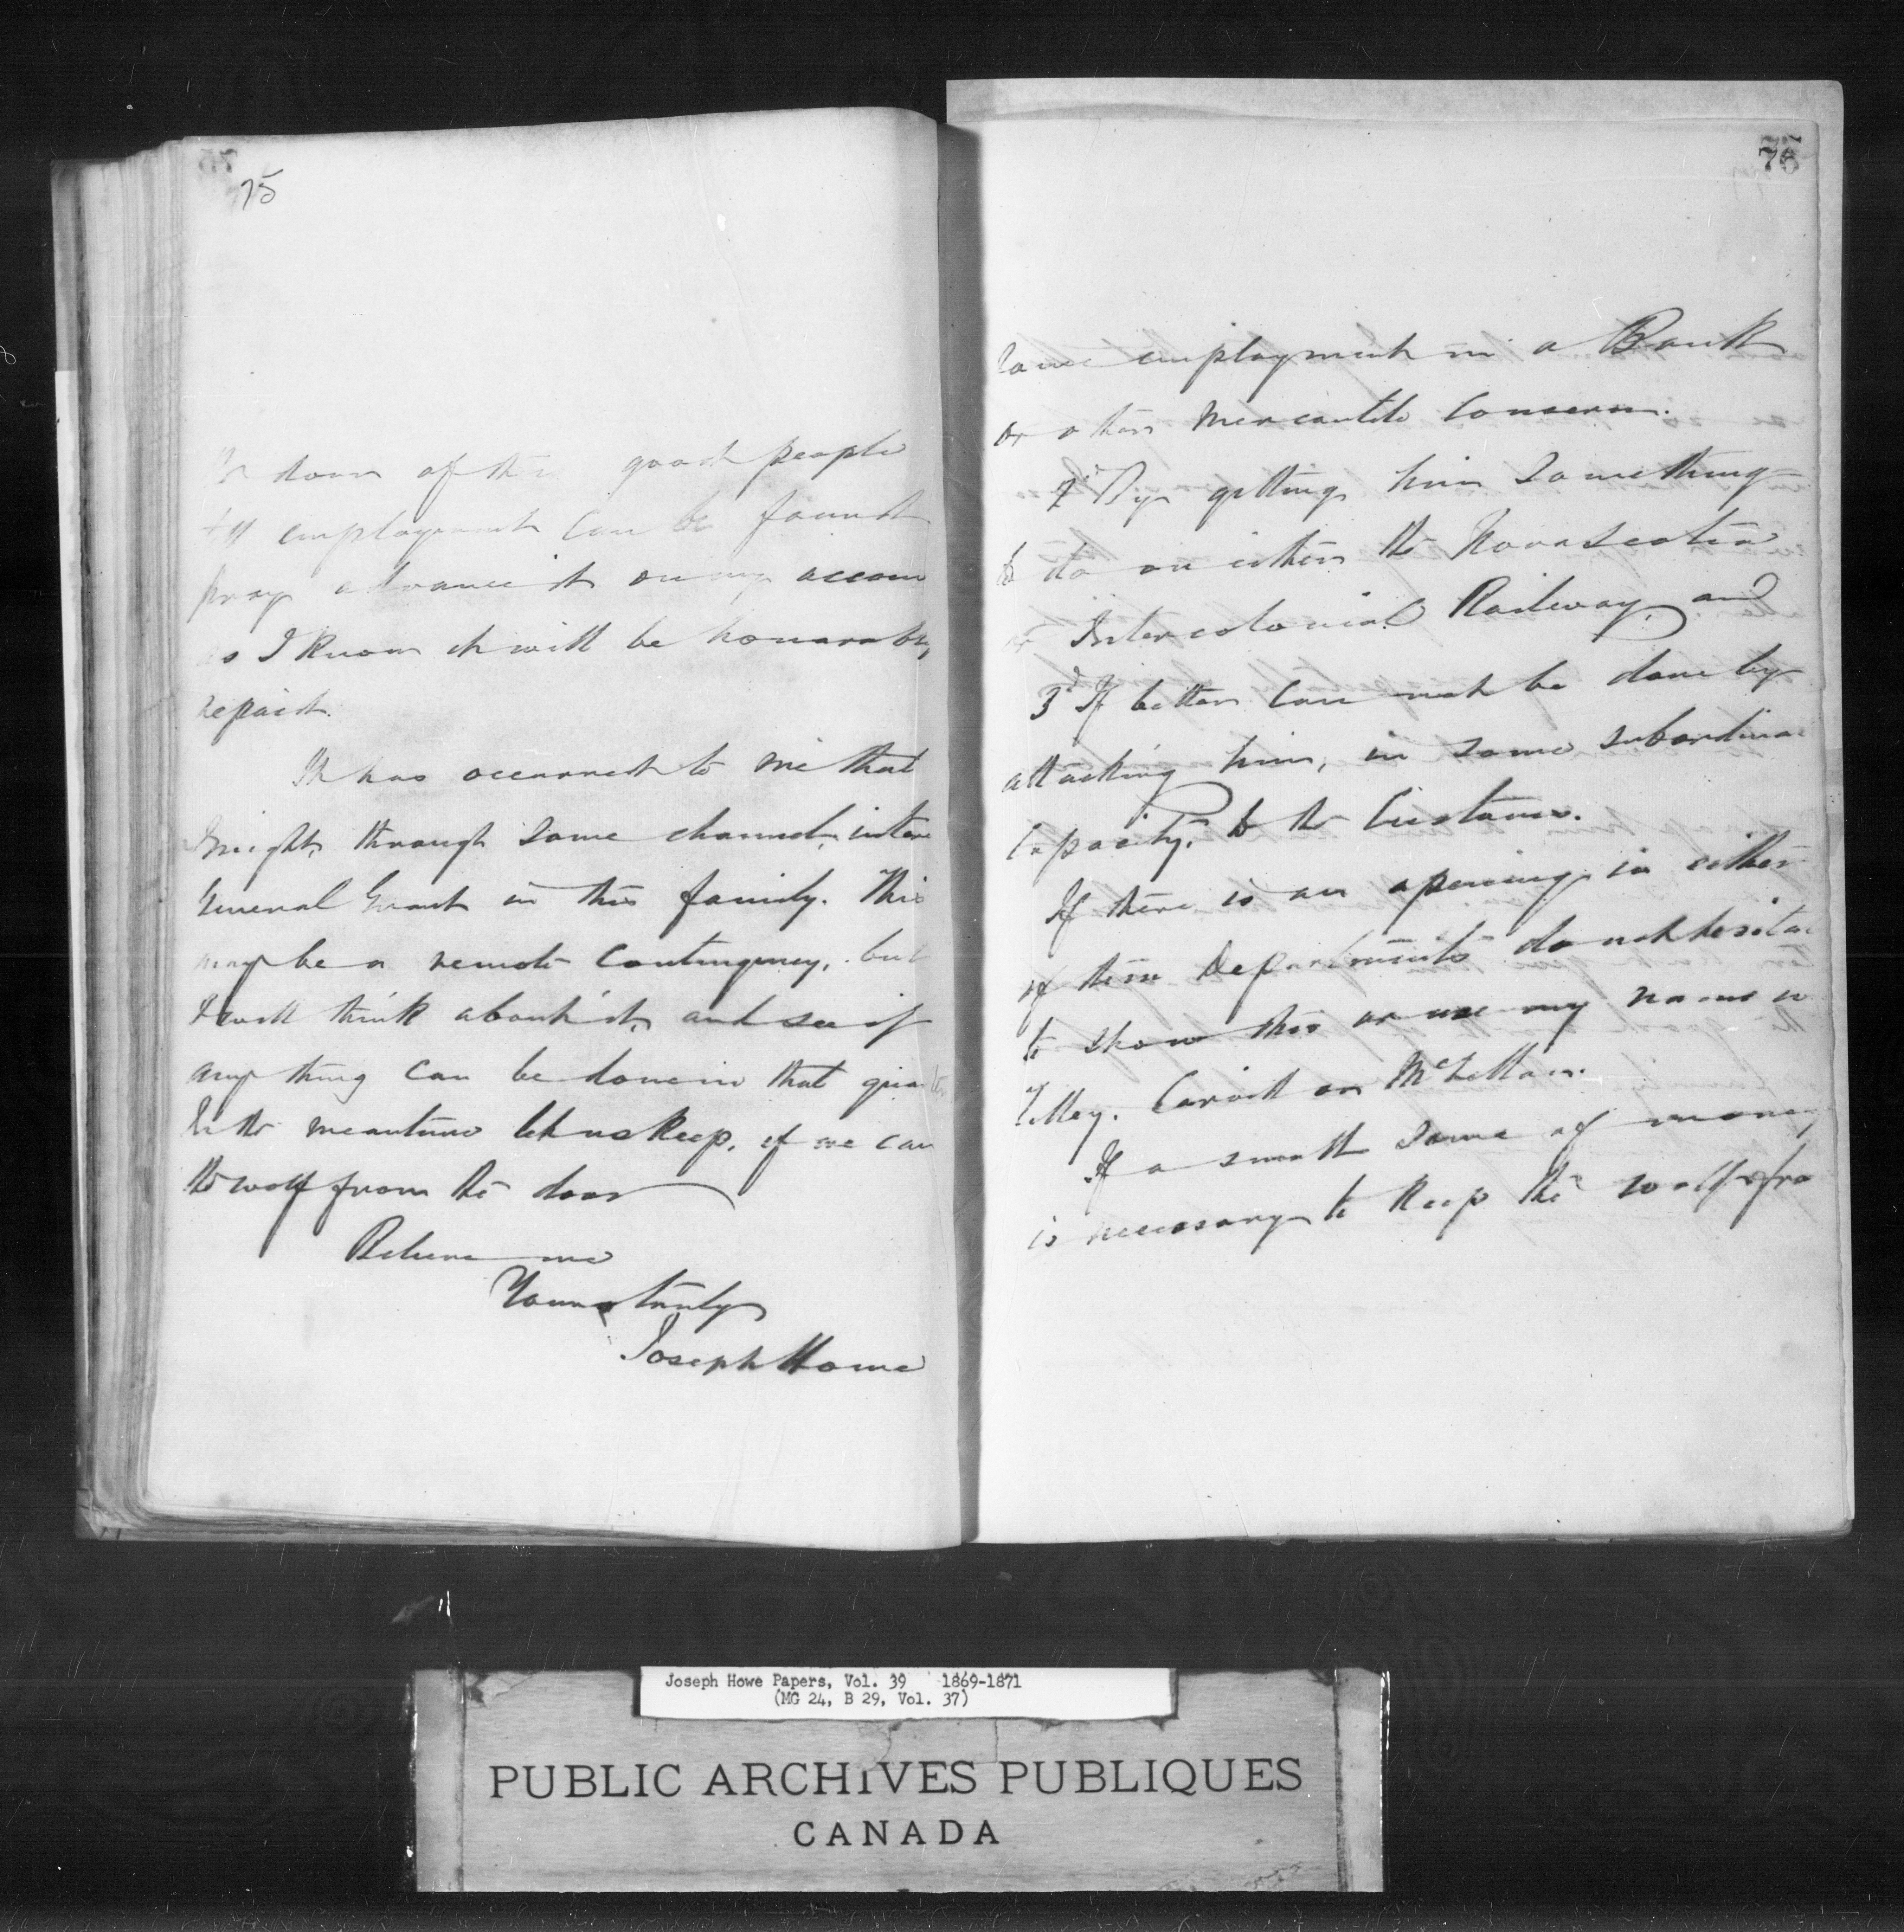 75
the door of these good people
till employment can be found
pray advance it on my accoun
as I know it will be honorably
repaid.
It has occurred to me that
I might, through some channel, intere
General Grant in this family. This
may be a remote contingency, but
I will think about it, and see if
any thing can be done in that quarter
In the meantime let us keep, if we can
the wolf from the door
Believe me
Yours truly
Joseph Howe
76
some employment in a Bank
or other Mercantile Concern.
2d By getting him Something
to do on either the Nova Scotia
or Intercolonial Railway, and
3d If better can not be done by
attaching him, in some subordina
Capacity, to the Customs.
If there is an opening in either
of these Departments do not hesita
to show this or use my name w
Tilley. Carvell or McLellan.
If a small Sume of money
is necessary to keep the wolf fro
Joseph Howe Papers, Vol. 39 1869-1871
(MG 24, B 29, Vol. 37)
PUBLIC ARCHIVES PUBLIQUES
CANADA